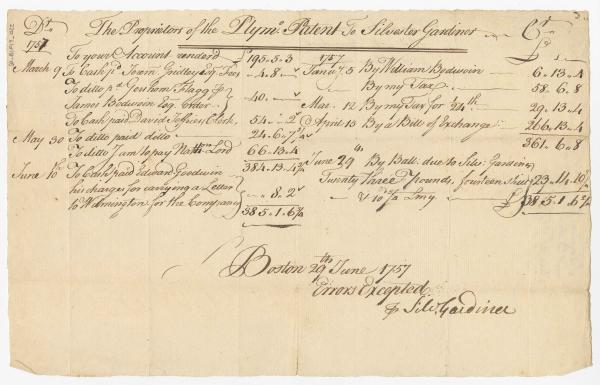 Dr The Proprietors of the Plymo. Patent To Silvester Gardiner Cr
1757
To your Account renderd £195.5.3
March 9 To Cash pd Jerem Gridley Esq Fees 4.8.
To ditto pd Gersham Flagg
James Bodwoin Esq. Order 40.
To Cash paid David Jeffries Clerk 54. 2
May 30 To ditto paid ditto 24.6.7
To ditto I am to pay Lord 66.13.4
384.13.4
June 10 To Cash paid Edward Goodwin
his charges for carrying a Letter
to Wilmington for the Company 8.2
385.1.6
1757 £
Janu. 5 By William Bodwoin 6.13.4
By my Tax 58.6.8
Mar. 12 By my Tax for 24th 29.13.4
April 13 By a Bill of Exchange 266.13.4
361.6.8
June 29 By Ball: due to Silv: Gardiner
Twenty three Pounds, fourteen shill 23.14.10
& 10 Lmy £ 385.1.6
Boston 29th June 1757
Errors Excepted
Silv. Gardiner